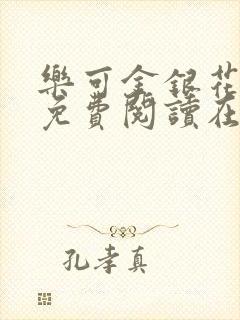 樂可金銀花
免費閱讀在
孔孝真